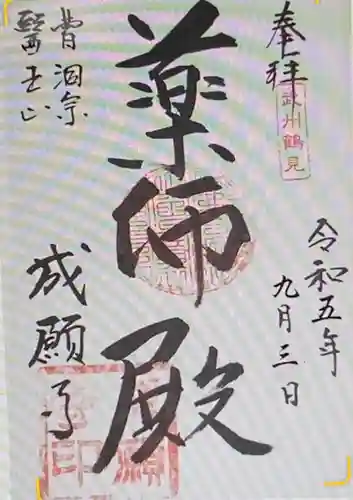 奉拝
武州鶴見
令和五年
九月三日
薬師殿
曹洞宗
醫王山
成願寺